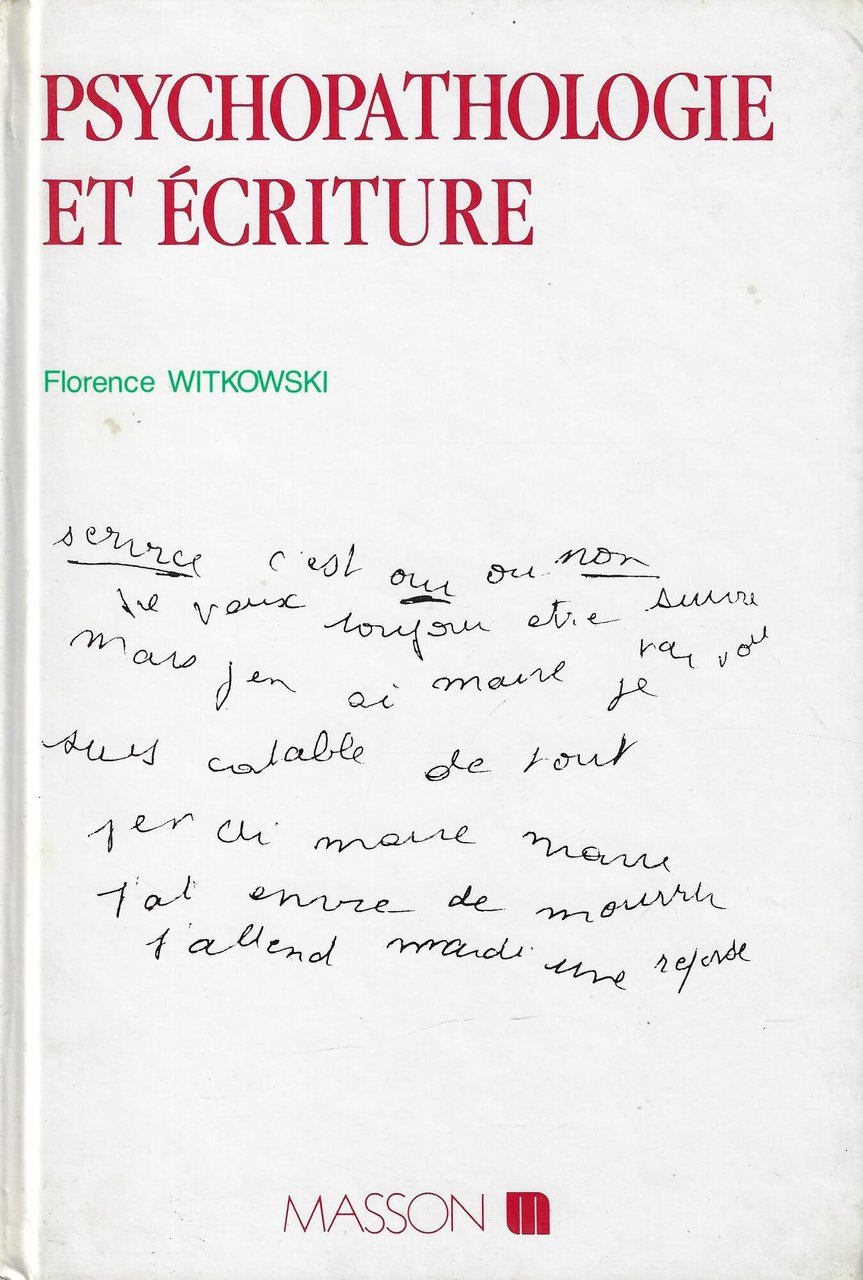 PSYCHOPATHOLOGIE
ET ÉCRITURE
Florence WITKOWSKI
service c'est oui ou non
Je veux toujour etre suivre
mais j'en ai marre je par vou
suis catable de tout
j'en ai marre marre
j'ai envie de mourrir
j'attend mardi une reponse
MASSON m